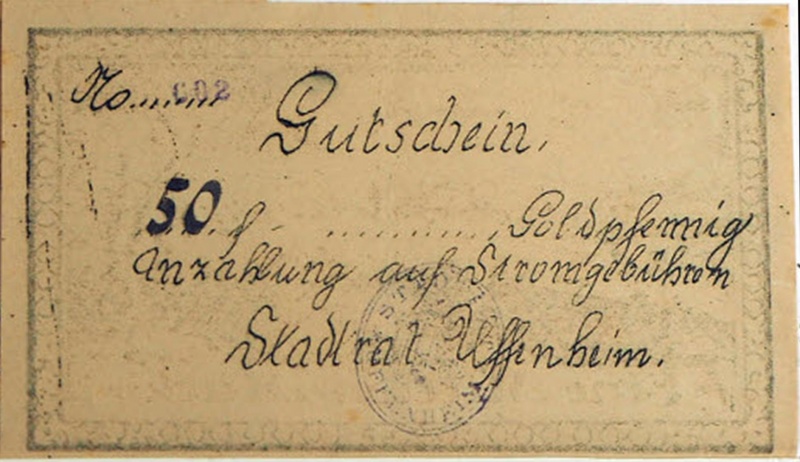 No. 602
Gutschein.
50 Goldpfennig
Anzahlung auf Stromgebühren
Stadtrat Uffenheim.